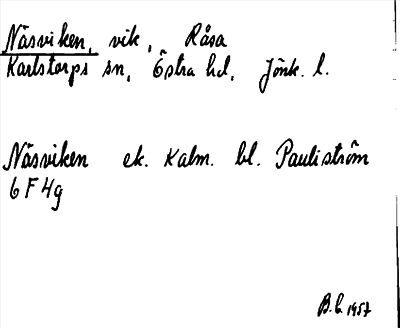 Näsviken, vik, Råsa
Karlstorps sn, Östra hd, Jönk. l.
Näsviken ek. Kalm. bl. Pauliström
6 F 4g
B.L. 1957